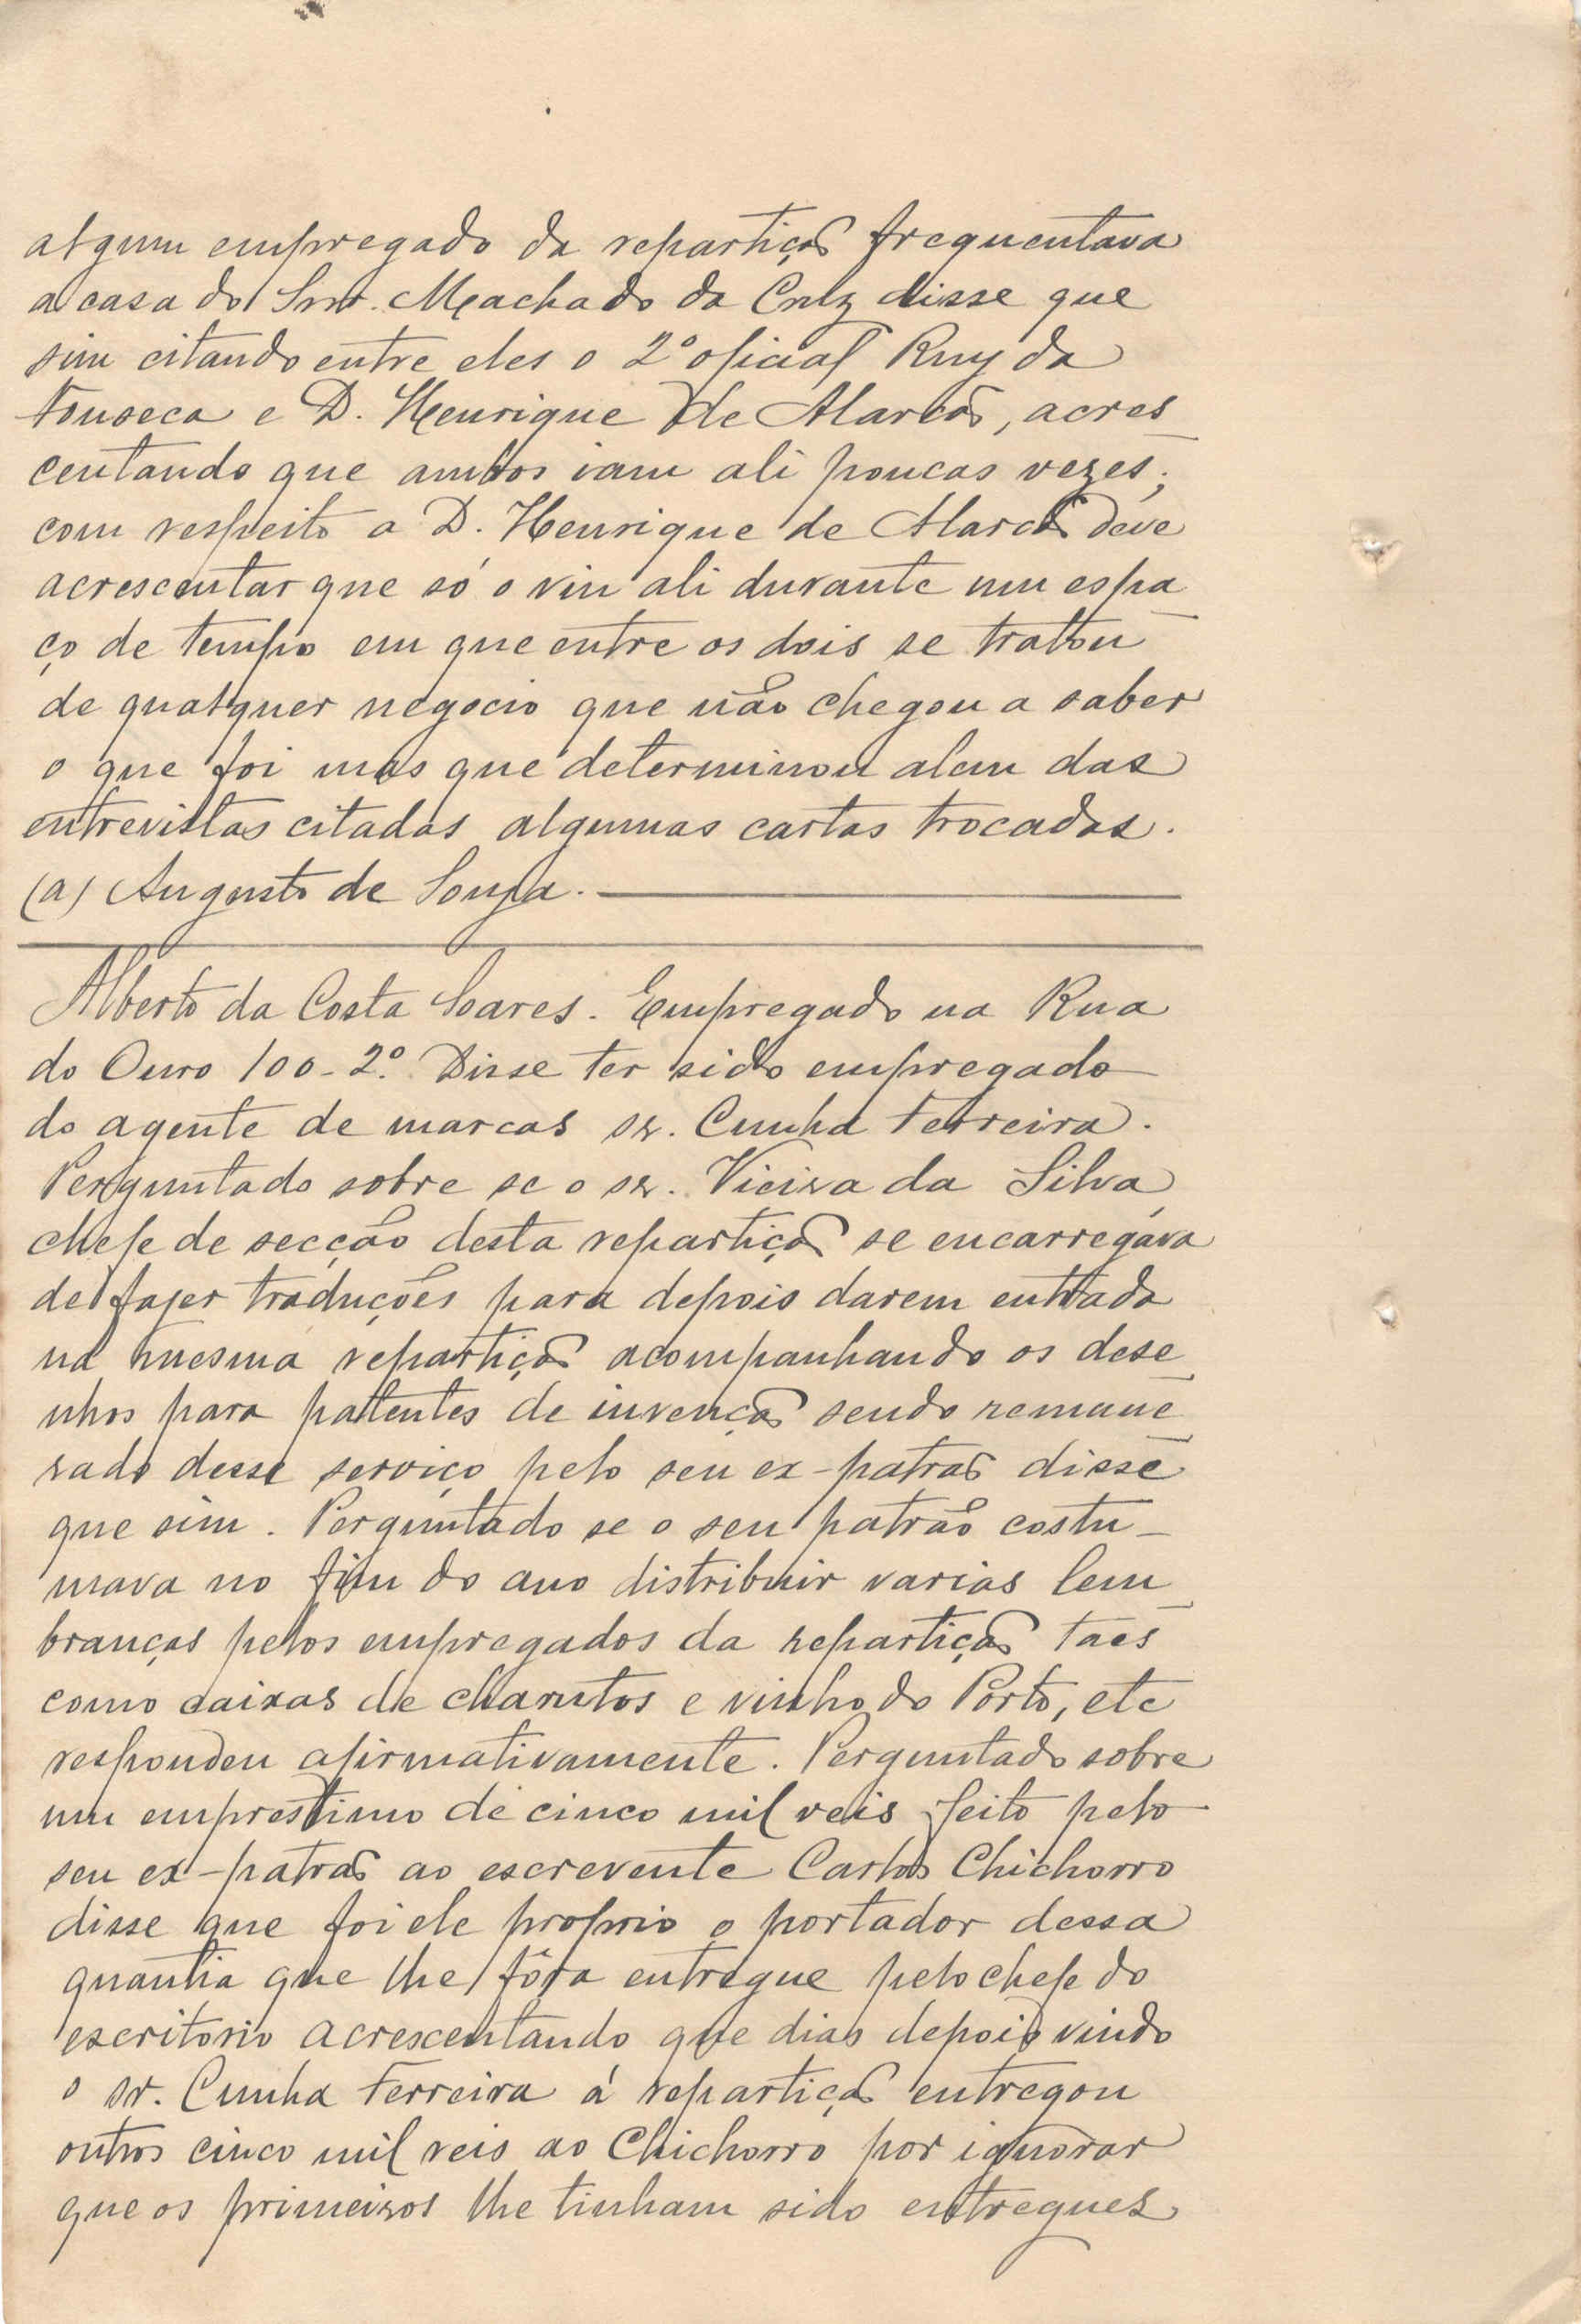 algum empregado da repartição frequentava
a casa do Snr. Machado da Cruz disse que
sim citando entre eles o 2º oficial Ruy da
Fonseca e D. Henrique de Alarcão, acres
centando que ambos iam ali poucas vezes;
com respeito a D. Henrique de Alarcão deve
acrescentar que só o viu ali durante um espa
ço de tempo em que entre os dois se tratou
de qualquer negocio que não chegou a saber
o que foi mas que determinou alem das
entrevistas citadas algumas cartas trocadas.
(a) Augusto de Souza.
Alberto da Costa Soares. Empregado na Rua
do Ouro 100-2º. Disse ter sido empregado
do agente de marcas sr. Cunha Ferreira.
Perguntado sobre se o sr. Vieira da Silva,
chefe de secção desta repartição se encarregava
de fazer traduções para depois darem entrada
na mesma repartição acompanhando os dese
nhos para patentes de invenção sendo remune
rado desse serviço pelo seu ex-patrão disse
que sim. Perguntado se o seu patrão costu-
mava no fim do ano distribuir varias lem
branças pelos empregados da repartição taes
como caixas de charutos e vinho do Porto, etc
respondeu afirmativamente. Perguntado sobre
um emprestimo de cinco mil reis feito pelo
seu ex-patrão ao escrevente Carlos Chichorro
disse que foi ele proprio o portador dessa
quantia que lhe fôra entregue pelo chefe do
escritorio acrescentando que dias depois vindo
o sr. Cunha Ferreira á repartição entregou
outros cinco mil reis ao Chichorro por ignorar
que os primeiros lhe tinham sido entregues